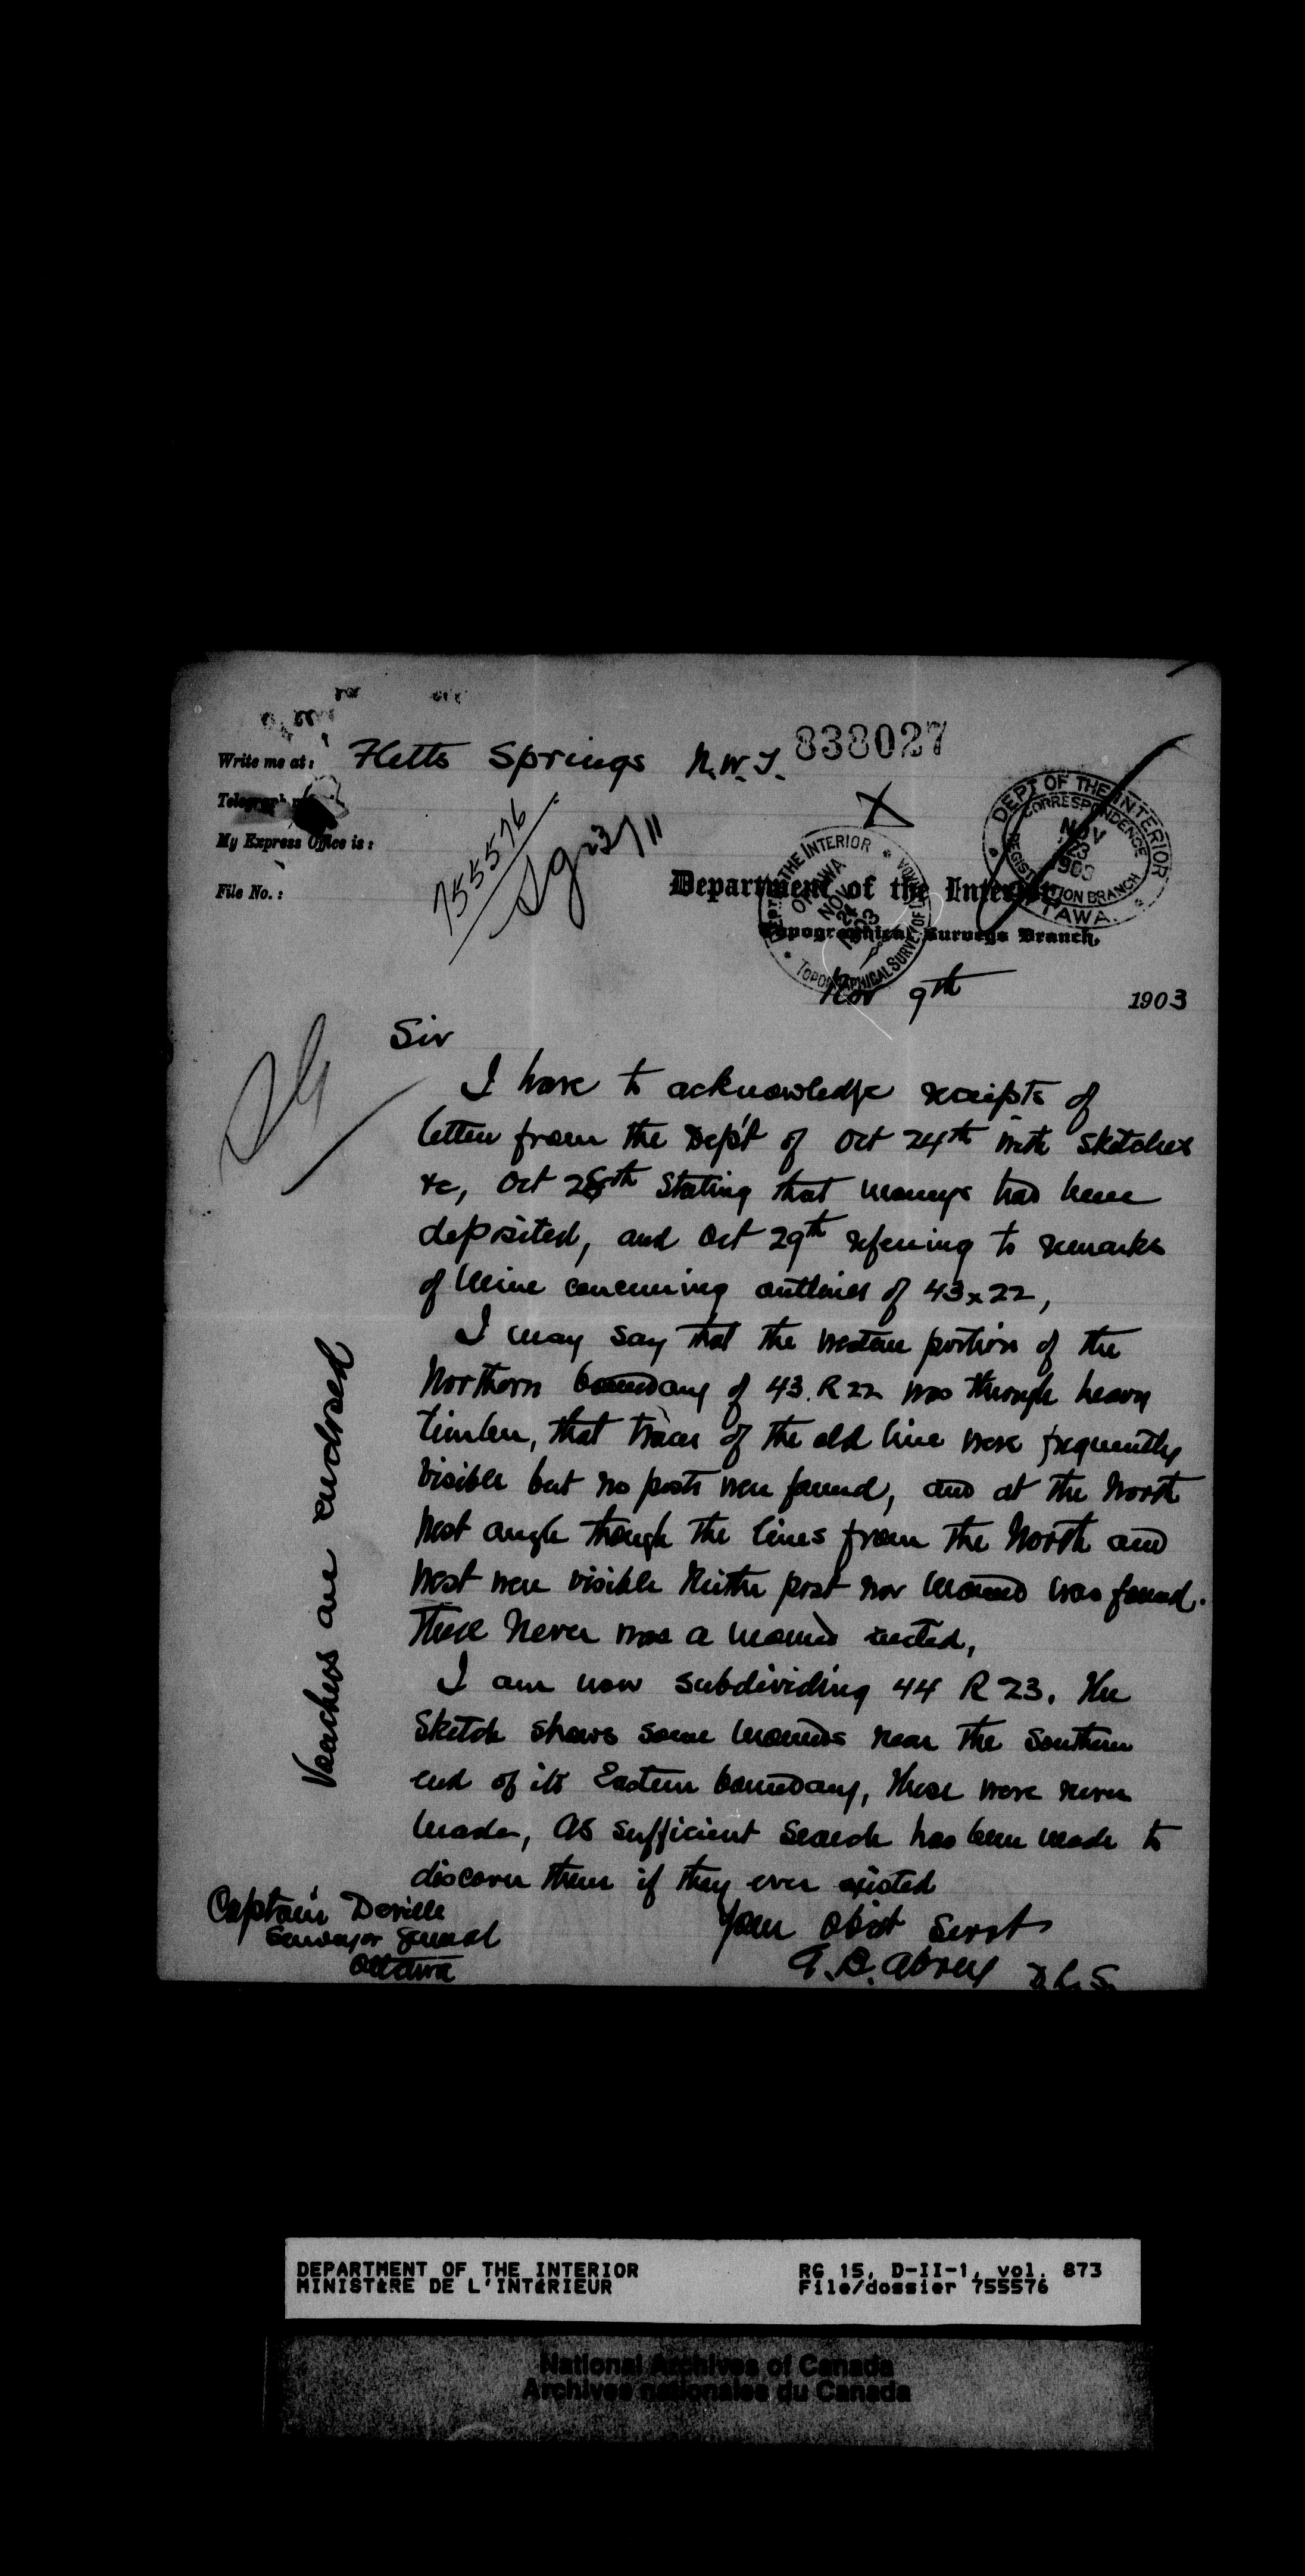 838027
Write me at: Fletts Springs N.W.T.
Telegraph
My Express Office is:
File No.:
755576
Sg 23/11
X
DEPT OF THE INTERIOR
CORRESPONDENCE
NOV
23
1903
REGISTRATION BRANCH
OTTAWA
DEPT. OF THE INTERIOR
OTTAWA
NOV
24
1903
TOPOGRAPHICAL SURVEY OF
Department of the Interior,
Topographical Surveys Branch,
Nov 9th 1903
Sir
I have to acknowledge receipts of
letters from the Dep't of Oct 24th with sketches
&c, Oct 28th stating that moneys had been
deposited, and Oct 29th referring to remarks
of mine concerning outlines of 43 x 22,
I may say that the western portion of the
Northern boundary of 43. R 22 was through heavy
timber, that traces of the old line were frequently
visible but no posts were found, and at the North
West angle though the lines from the North and
West were visible neither post nor mound was found.
There never was a mound erected,
I am now subdividing 44 R 23. The
sketch shows some mounds near the Southern
end of its Eastern boundary, these were never
made, as sufficient search has been made to
discover them if they ever existed
Your obdt servt
Captain Deville
Surveyor General
Ottawa
D L S
Vouchers are enclosed
DEPARTMENT OF THE INTERIOR
MINISTÈRE DE L'INTÉRIEUR
RG 15, D-II-1, vol. 873
File/dossier 755576
National Archives of Canada
Archives nationales du Canada